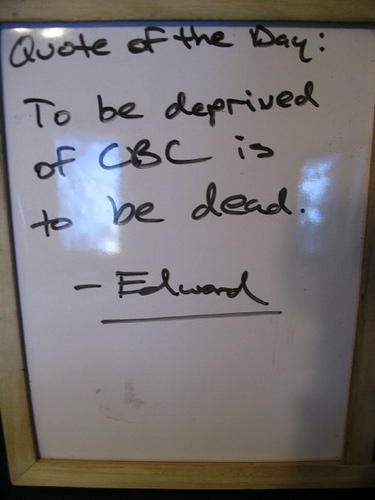 Quote of the Day:
To be deprived
of CBC is
to be dead.
- Edward